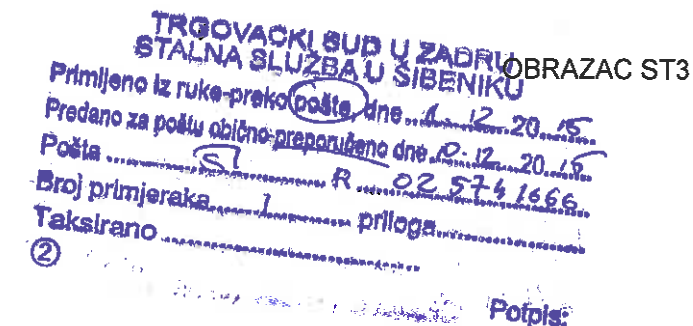 TRGOVAČKI SUD U ZADRU
STALNA SLUŽBA U ŠIBENIKU
OBRAZAC ST3
Primljeno iz ruke-preko pošte, dne 1. 12. 2015
Predano za poštu obično-preporučeno dne 10. 12. 2015
Pošta SI R 02 5741666
Broj primjeraka 1 priloga
Taksirano
2
Potpis: